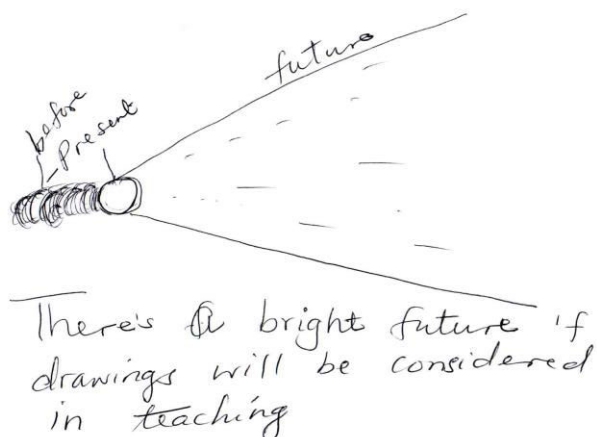 future
before
-Present
There's a bright future if
drawings will be considered
in teaching